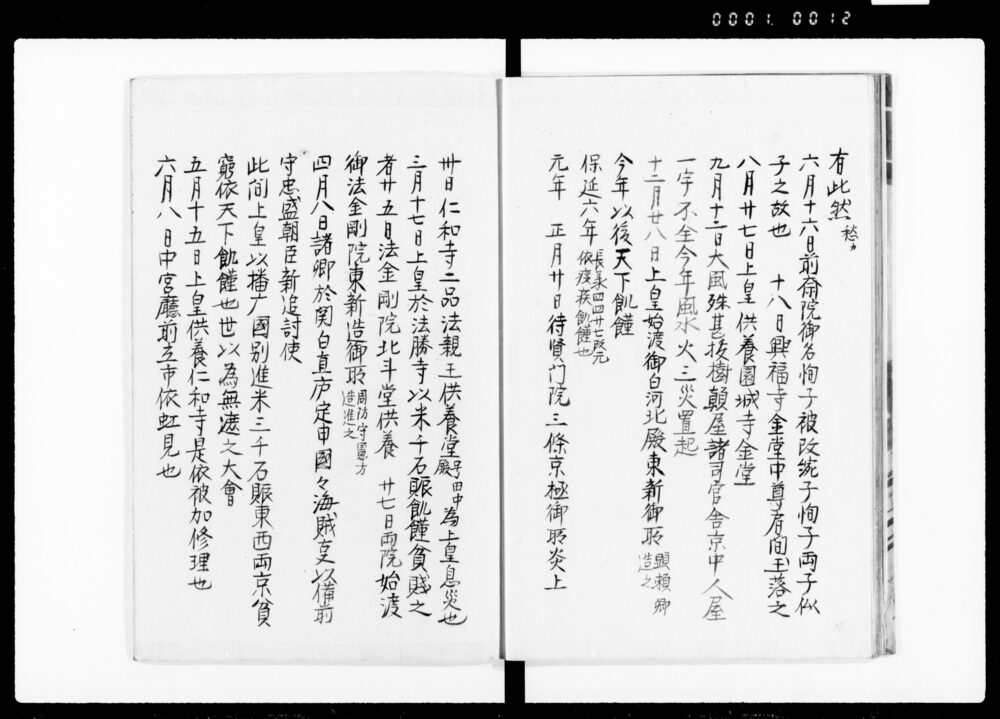 0001 0012
有此然 愁カ
六月十六日前斎院御名恂子被改統子恂子両子似
子之故也　十八日興福寺金堂中尊眉間玉落之
八月廿七日上皇供養園城寺金堂
九月十二日大風殊甚抜樹顛屋諸司官舎京中人屋
一宇不全今年風水火三災置起
十二月廿八日上皇始渡御白河北殿東新御所 顕頼卿造之
今年以後天下飢饉
保延六年 長承四四廿七改元 依疫疾飢饉也
元年　正月廿日待賢门院三條京極御所炎上
卅日仁和寺二品法親王供養堂 号田中殿 為上皇息災也
三月十七日上皇於法勝寺以米千石賑飢饉貧賤之
者廿五日法金剛院北斗堂供養　廿七日両院始渡
御法金剛院東新造御所 周防守憲方造進之
四月八日諸卿於関白直庐定申國々海賊支以備前
守忠盛朝臣新追討使
此间上皇以播广國別進米三千石賑東西両京貧
窮依天下飢饉也世以為無遮之大會
五月十五日上皇供養仁和寺是依被加修理也
六月八日中宮廳前立市依虹見也